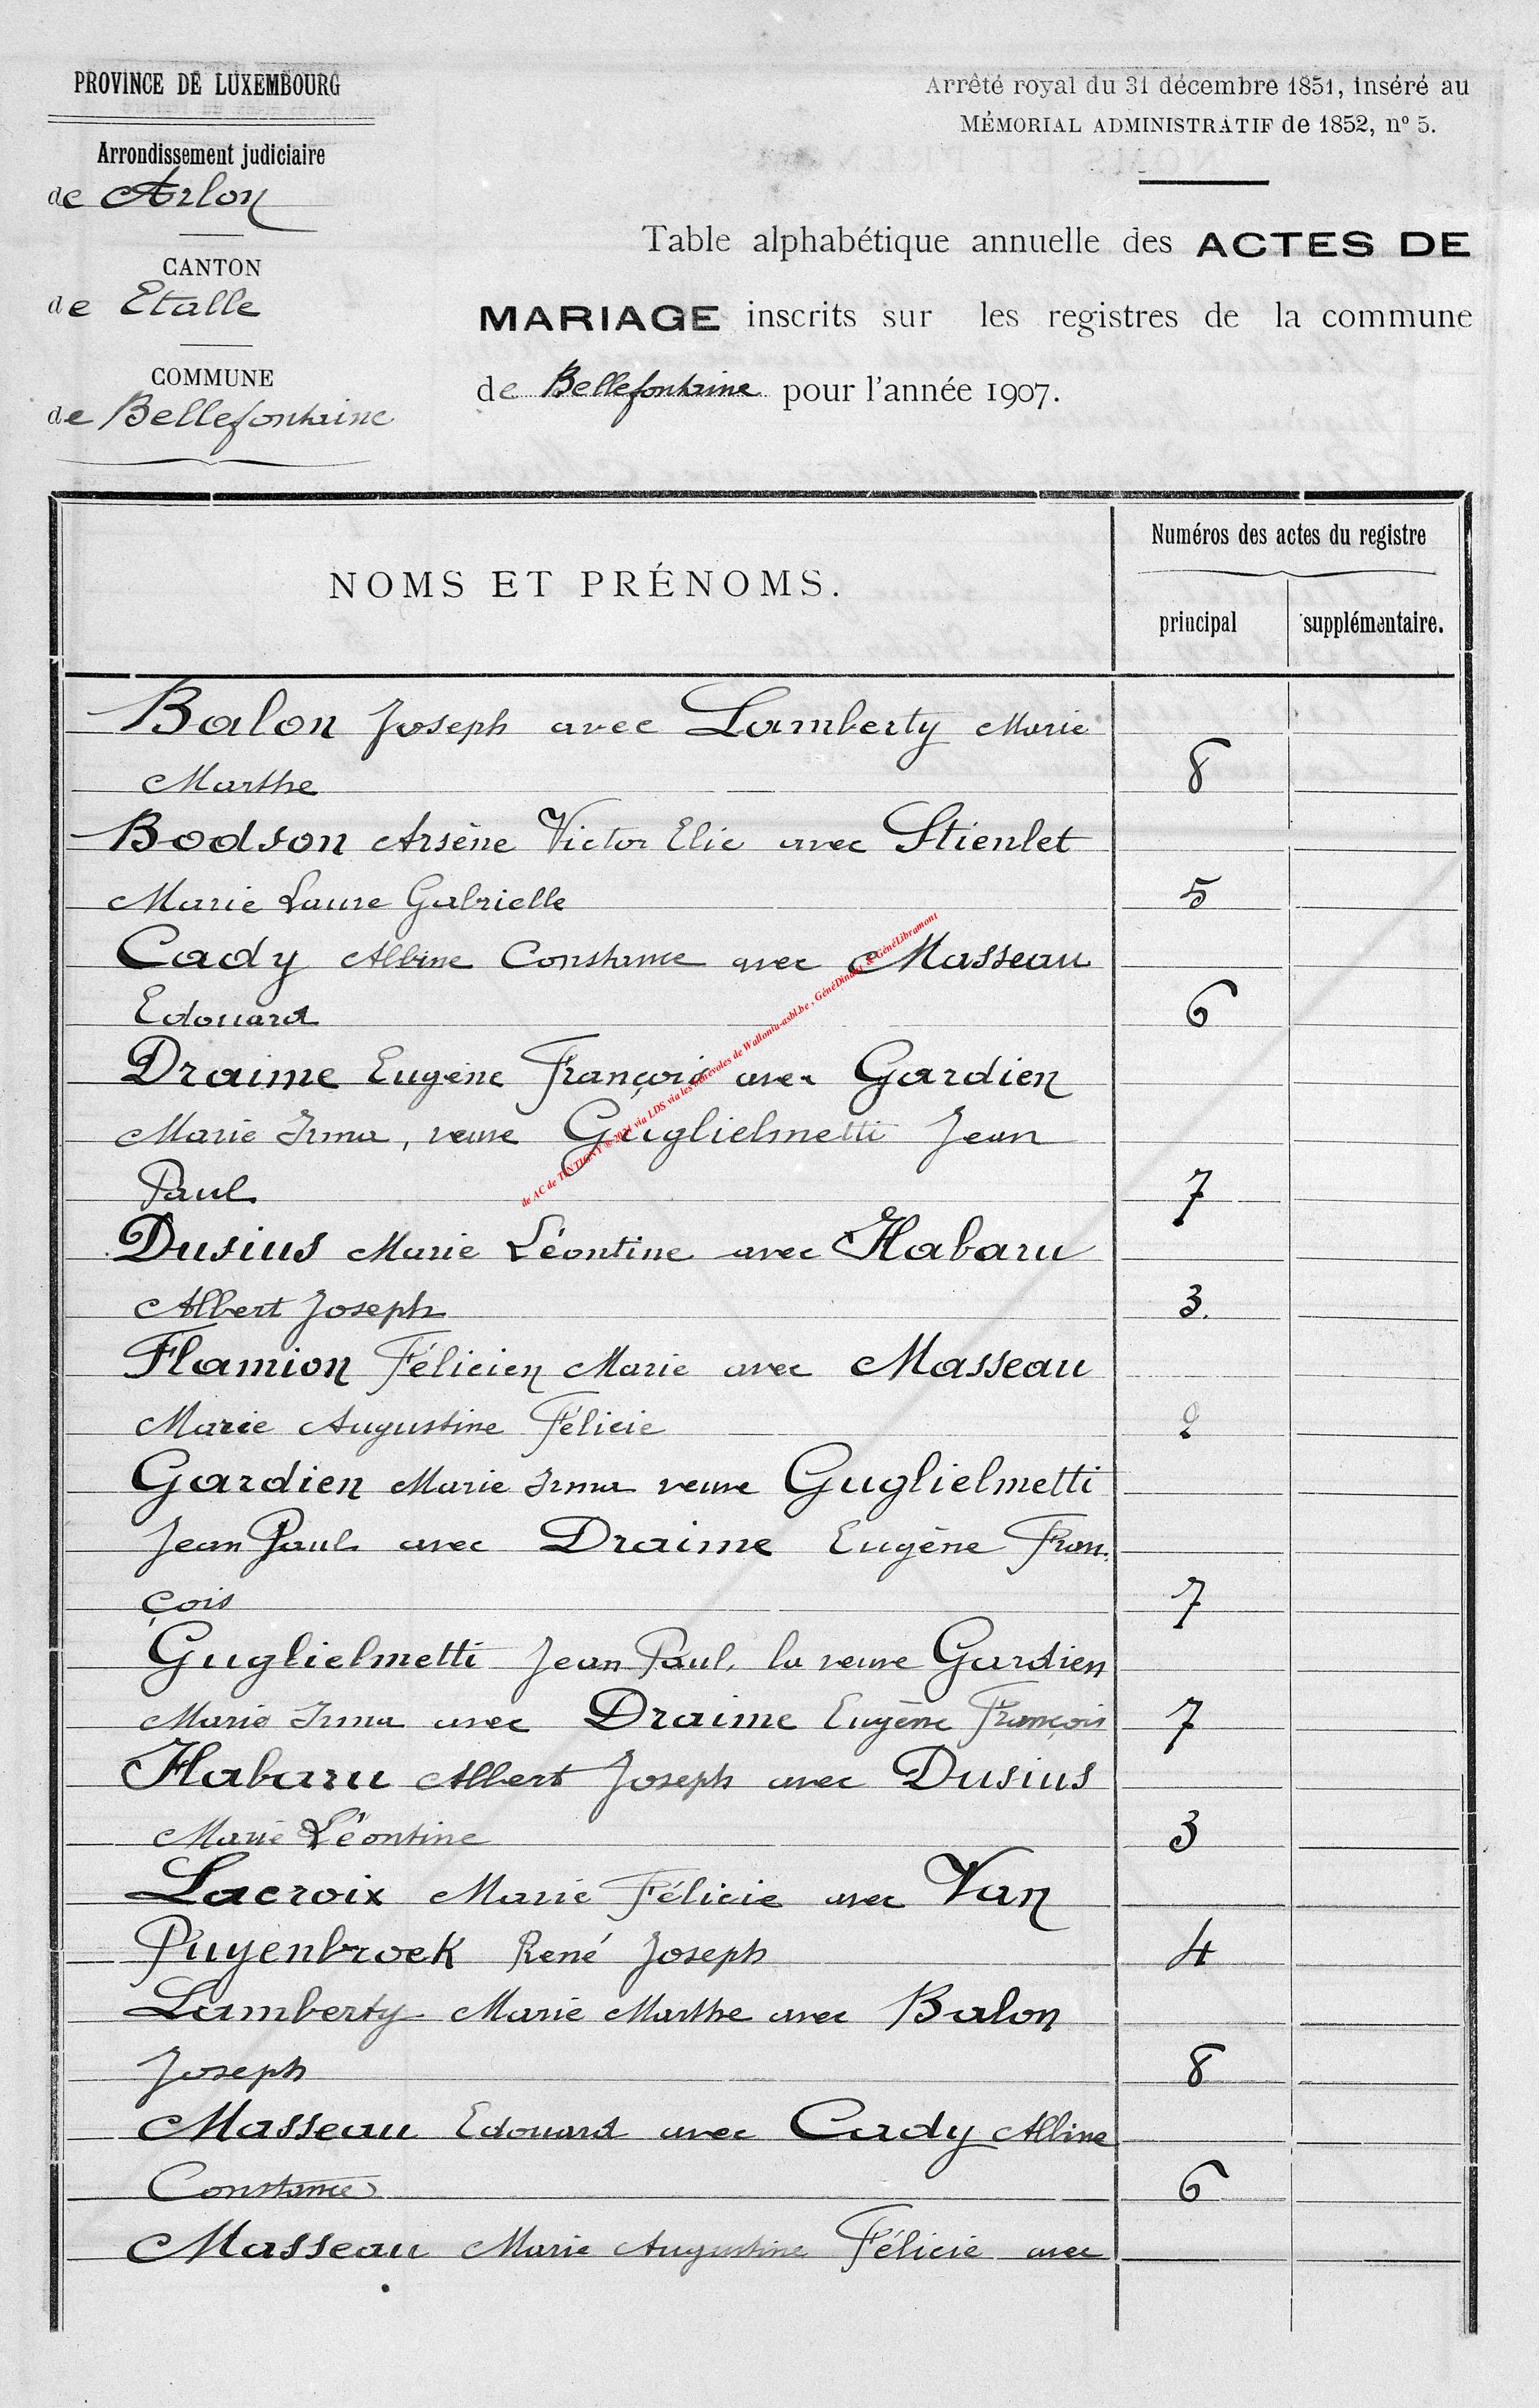 PROVINCE DE LUXEMBOURG
Arrondissement judiciaire
de Arlon
CANTON
de Etalle
COMMUNE
de Bellefontaine
Arrêté royal du 31 décembre 1851, inséré au
MÉMORIAL ADMINISTRATIF de 1852, n° 5.
Table alphabétique annuelle des ACTES DE
MARIAGE inscrits sur les registres de la commune
de Bellefontaine pour l'année 1907.
NOMS ET PRÉNOMS.
Numéros des actes du registre
principal
supplémentaire.
Balon Joseph avec Lamberty Marie
Marthe 8
Bodson Arsène Victor Elie avec Stienlet
Marie Laure Gabrielle 5
Cady Albine Constance avec Masseau
Edouard 6
Draime Eugène François avec Gardien
Marie Irma, veuve Guglielmetti Jean
Paul 7
Dusius Marie Léontine avec Habaru
Albert Joseph 3.
Flamion Félicien Marie avec Masseau
Marie Augustine Félicie 2
Gardien Marie Irma veuve Guglielmetti
Jean Paul avec Draime Eugène Fran.
çois 7
Guglielmetti Jean Paul, la veuve Gardien
Marie Irma avec Draime Eugène François 7
Habaru Albert Joseph avec Dusius
Marie Léontine 3
Lacroix Marie Félicie avec Van
Puyenbroek René Joseph 4
Lamberty Marie Marthe avec Balon
Joseph 8
Masseau Edouard avec Cady Albine
Constance 6
Masseau Marie Augustine Félicie avec
de AC de TINTIGNY @ 2021 via LDS via les bénévoles de Wallonia-asbl.be, GénéDinant & GénéLibramont